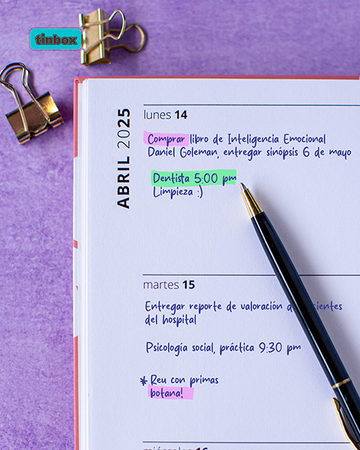 tinbox
ABRIL 2025
lunes 14
Comprar libro de Inteligencia Emocional
Daniel Goleman, entregar sinópsis 6 de mayo
Dentista 5:00 pm
Limpieza :)
martes 15
Entregar reporte de valoración de
del hospital
Psicología social, práctica 9:30 pm
* Reu con primas
botana!
miércoles 16